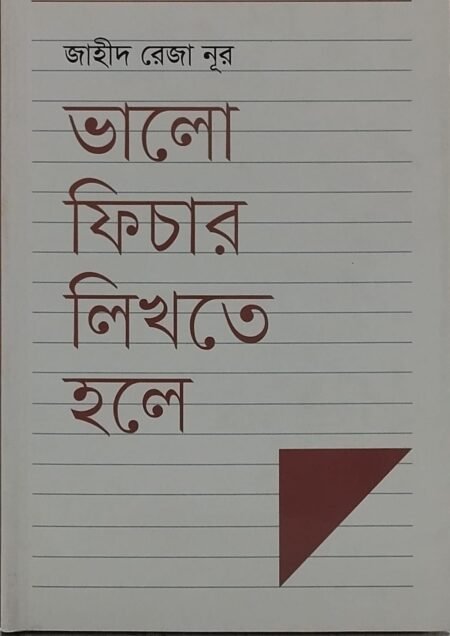 জাহীদ রেজা নূর
ভালো
ফিচার
লিখতে
হলে